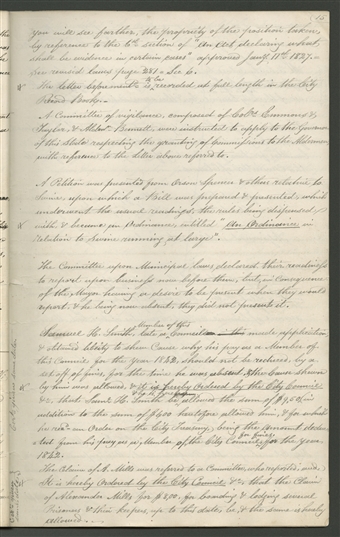 15
you will see, further, the propriety of the position taken,
by reference to the 6th section of "An Act declaring what
shall be evidence in certain cases" approved Jany 11th 1827.
See revised laws page 281 & Sec 6.
to be
recorded at full length in the City
Record Book.
A Committee of vigilance, composed of Cols Emmons &
Taylor, & Alderm Bennett, were instructed to apply to the Governor
of this State respecting the granting of Commissions to the Aldermen
with reference to the letter above referred to.
A Petition was presented from Orson Spencer & others relative to
Swine, upon which a Bill was prepared & presented, which
underwent the usual readings, the rules being dispensed
with, & became an Ordinance, entitled "An Ordinance in
relation to Swine running at large".
The Committee upon Municipal laws, declared their readiness
to report upon business now before them, but, in consequence
of the Mayor having a desire to be present when they would
report, & he being now absent, they did not present it.
Member of this
Samuel H. Smith, late a Council made application,
& obtained liberty to shew Cause why his pay as a Member of
this Council for the year 1842, should not be reduced, by a
set off of fines, for the time he was absent. & the Cause shewn
by him was allowed, & it is hereby ordered by the City Council
&c. that Samuel H. Smith be allowed the sum of $9,50 in
addition to the sum of $600 heretofore allowed him, & for which
he has an Order on the City Treasury, being the amount deduc-
for fines,
ted from his pay as a Member of the City Council, for the year
1842.
The claim of A. Mills was referred to a Committee, who reported, and,
It is hereby Ordered by the City Council &c. that the Claim
of Alexander Mills for $8,00, for boarding & lodging several
Prisoners & their keepers, up to this date, be & the same is hereby
allowed.